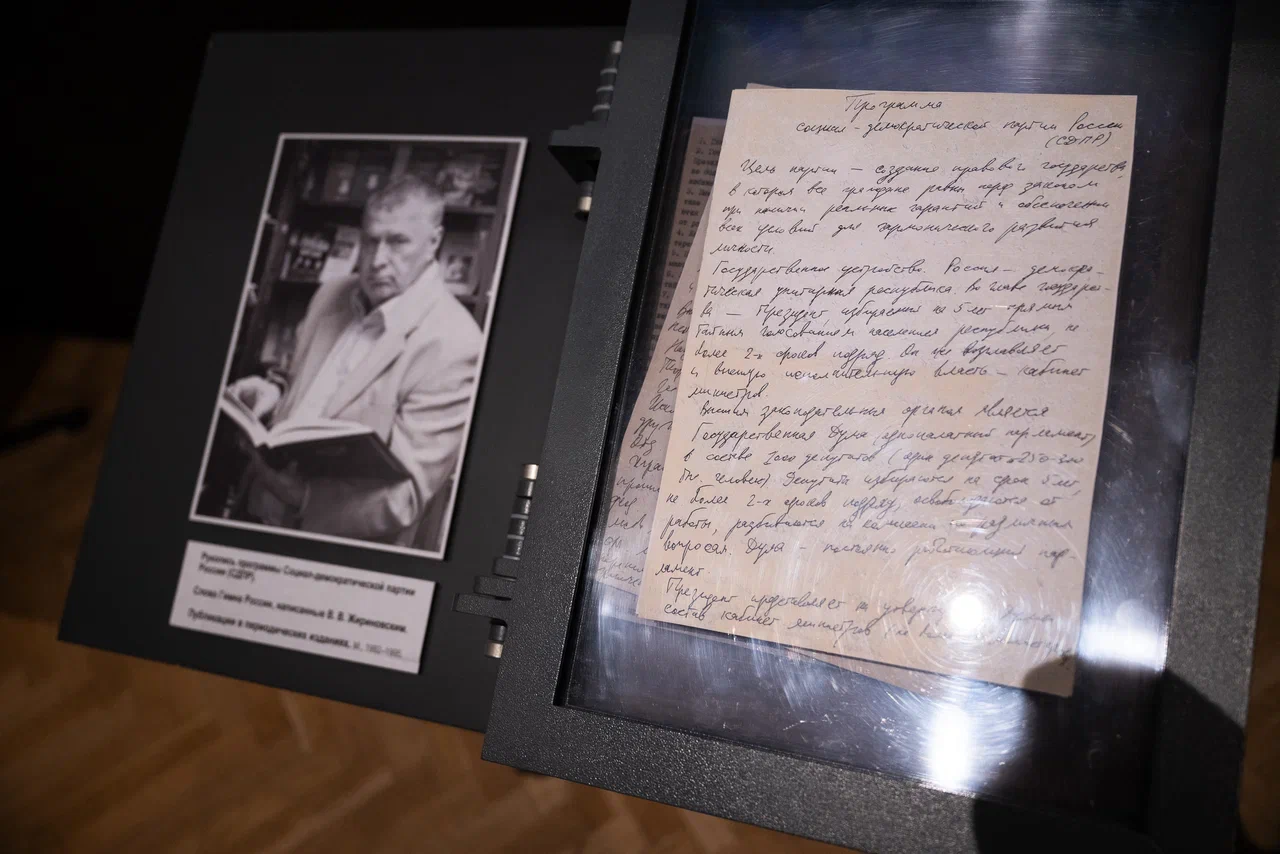 Рукопись программы Социал-демократической партии
России (СДПР)
Слова Гимна России, написанные В. В. Жириновским.
Публикации в периодических изданиях,
Программа
социал-демократической партии России
(СДПР)
Цель партии — создание правового государства,
в котором все граждане равны перед законом
при наличии реальных гарантий и обеспечении
всех условий для гармонического развития
личности.
Государственное устройство. Россия — демокра-
тическая унитарная республика. Во главе государст-
ва — Президент, избираемый на 5 лет прямым
тайным голосованием населения республики, не
более 2-х сроков подряд. Он же возглавляет
и высшую исполнительную власть — кабинет
министров.
Высшим законодательным органом является
Государственная Дума (однопалатный парламент)
в составе 1000 депутатов (один депутат от 250-300
тыс. человек). Депутаты избираются на срок 5 лет,
не более 2-х сроков подряд, освобождаются от
работы, разбиваются на комиссии по различным
вопросам. Дума — постоянно работающий пар-
ламент.
Президент представляет на
состав кабинет министров